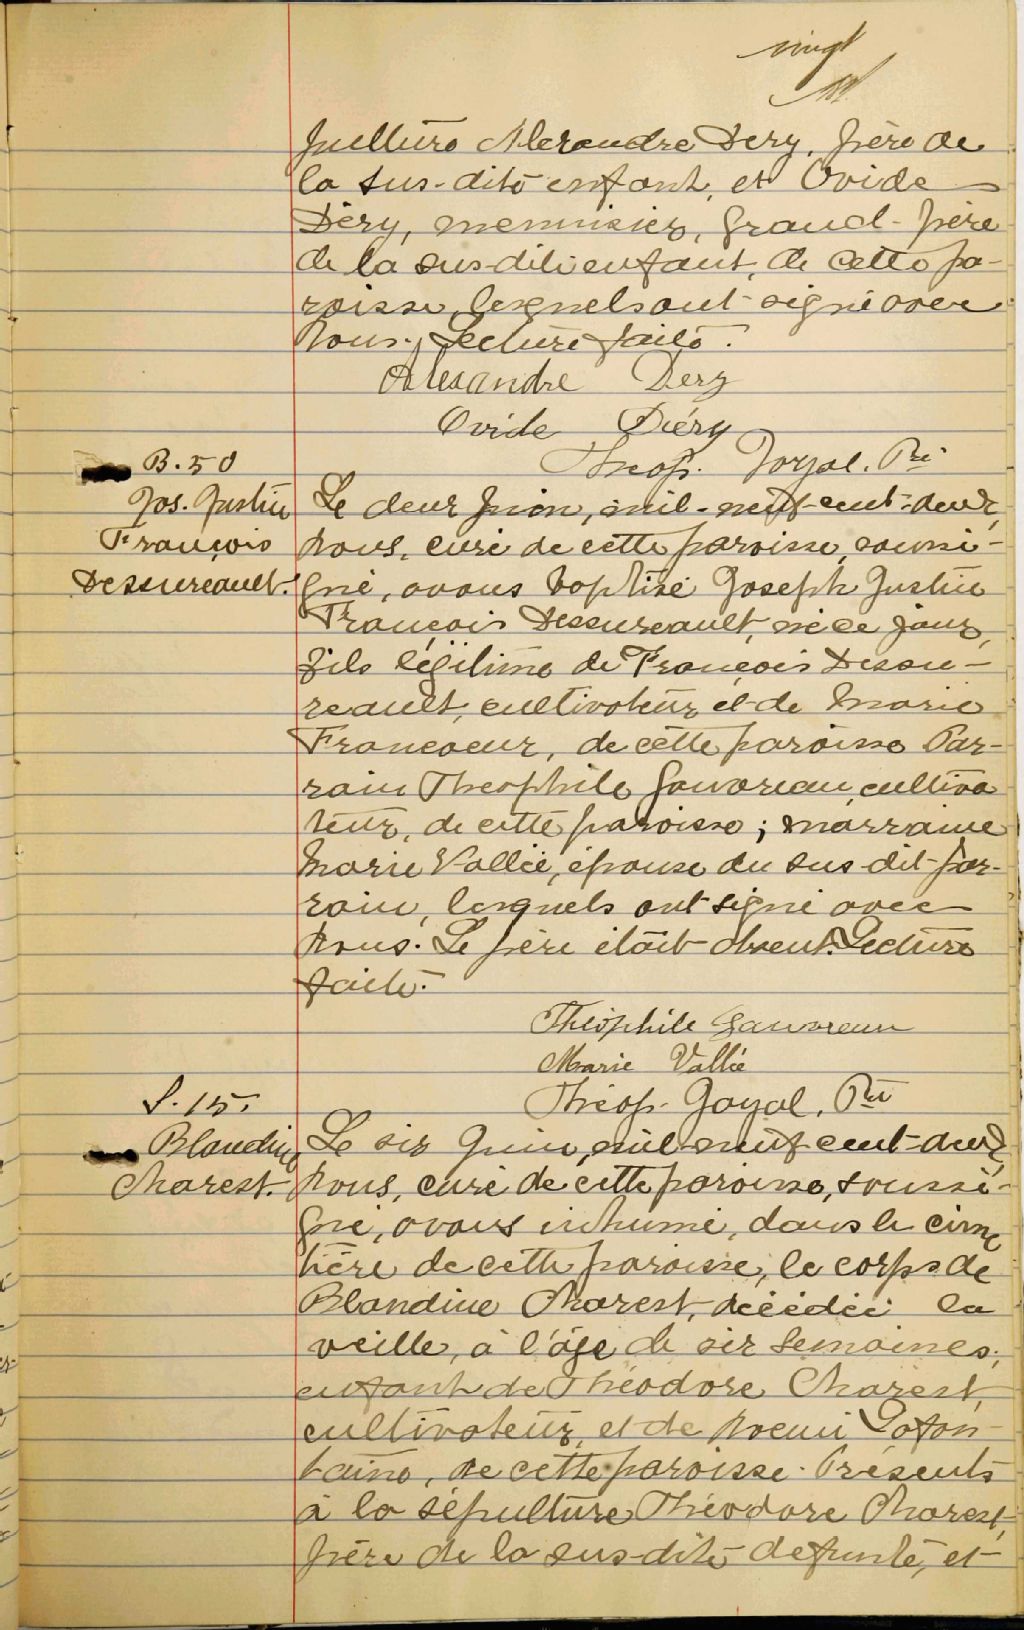 vingt
pulture Alexandre Dery, père de
la sus-dite enfant, et Ovide
Déry, menuisier, grand-père
de la sus-dite enfant, de cette pa-
roisse, lesquels ont signé avec
Nous. Lecture faite.
Alexandre Dery
Ovide Déry
Théop. Joyal, Ptre
B. 50
Jos. Justin
François
Dessureault.
Le deux Juin, mil-neuf-cent-deux,
Nous, curé de cette paroisse, soussi-
gné, avons baptisé Joseph Justin
François Dessureault, né ce jour,
fils légitime de François Dessu-
reault, cultivateur et de Marie
Francoeur, de cette paroisse Par-
rain Théophile Gauvreau, cultiva
teur, de cette paroisse; marraine
Marie Vallée, épouse du sus-dit par-
rain, lesquels ont signé avec
Nous. Le père était absent. Lecture
faite.
Théophile Gauvreau
Marie Vallée
Théop. Joyal, Ptre
S. 15.
Blandine
Charest.
Le six Juin, mil-neuf-cent-deux,
Nous, curé de cette paroisse, soussi-
gné, avons inhumé, dans le cime
tière de cette paroisse, le corps de
Blandine Charest, décédée la
veille, à l'âge de six semaines,
enfant de Théodore Charest,
cultivateur, et de Noémi Lafon-
taine, de cette paroisse. Présents
à la sépulture Théodore Charest,
père de la sus-dite défunte, et